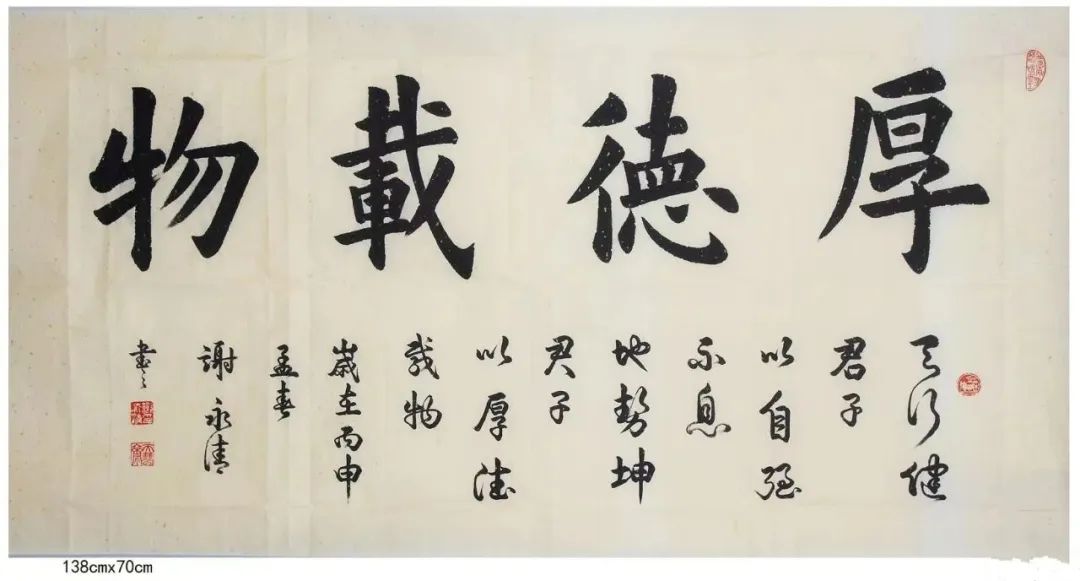 厚德載物
天行健
君子
以自强
不息
地勢坤
君子
以厚德
載物
歲在丙申
孟春
謝永清
書之
138cmx70cm